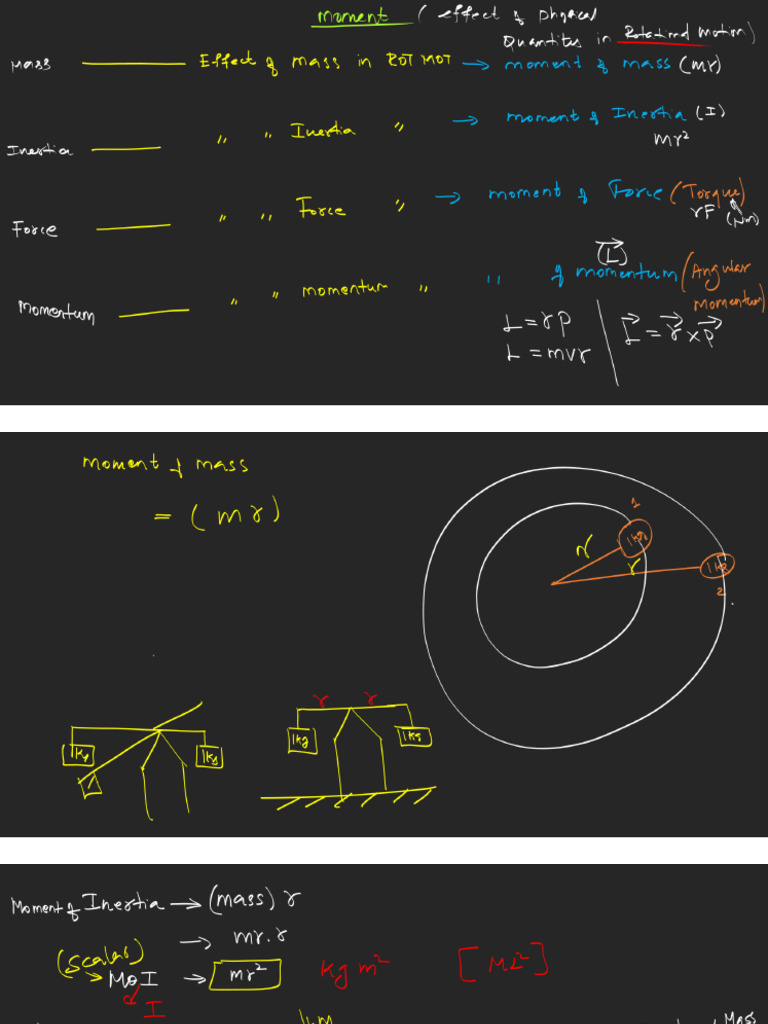 moment ( effect of Physical
Quantites in Rotational Motion)
Mass Effect of mass in ROT MOT → moment of mass (mr)
Inertia " " Inertia " → moment of Inertia (I)
mr²
Force " " Force " → moment of Force (Torque)
rF (Nm)
(L⃗)
Momentum " " momentum " " of momentum (Angular
momentum)
L = rp
L = mvr
L⃗ = r⃗ × p⃗
moment of mass
= (mr)
1
1kg
r
r
1kg
2
r r
1kg 1kg 1kg 1kg
Moment of Inertia → (mass) r
→ mr.r
(Scalar)
→ MOI → mr² kgm² [ML²]
I
Mass